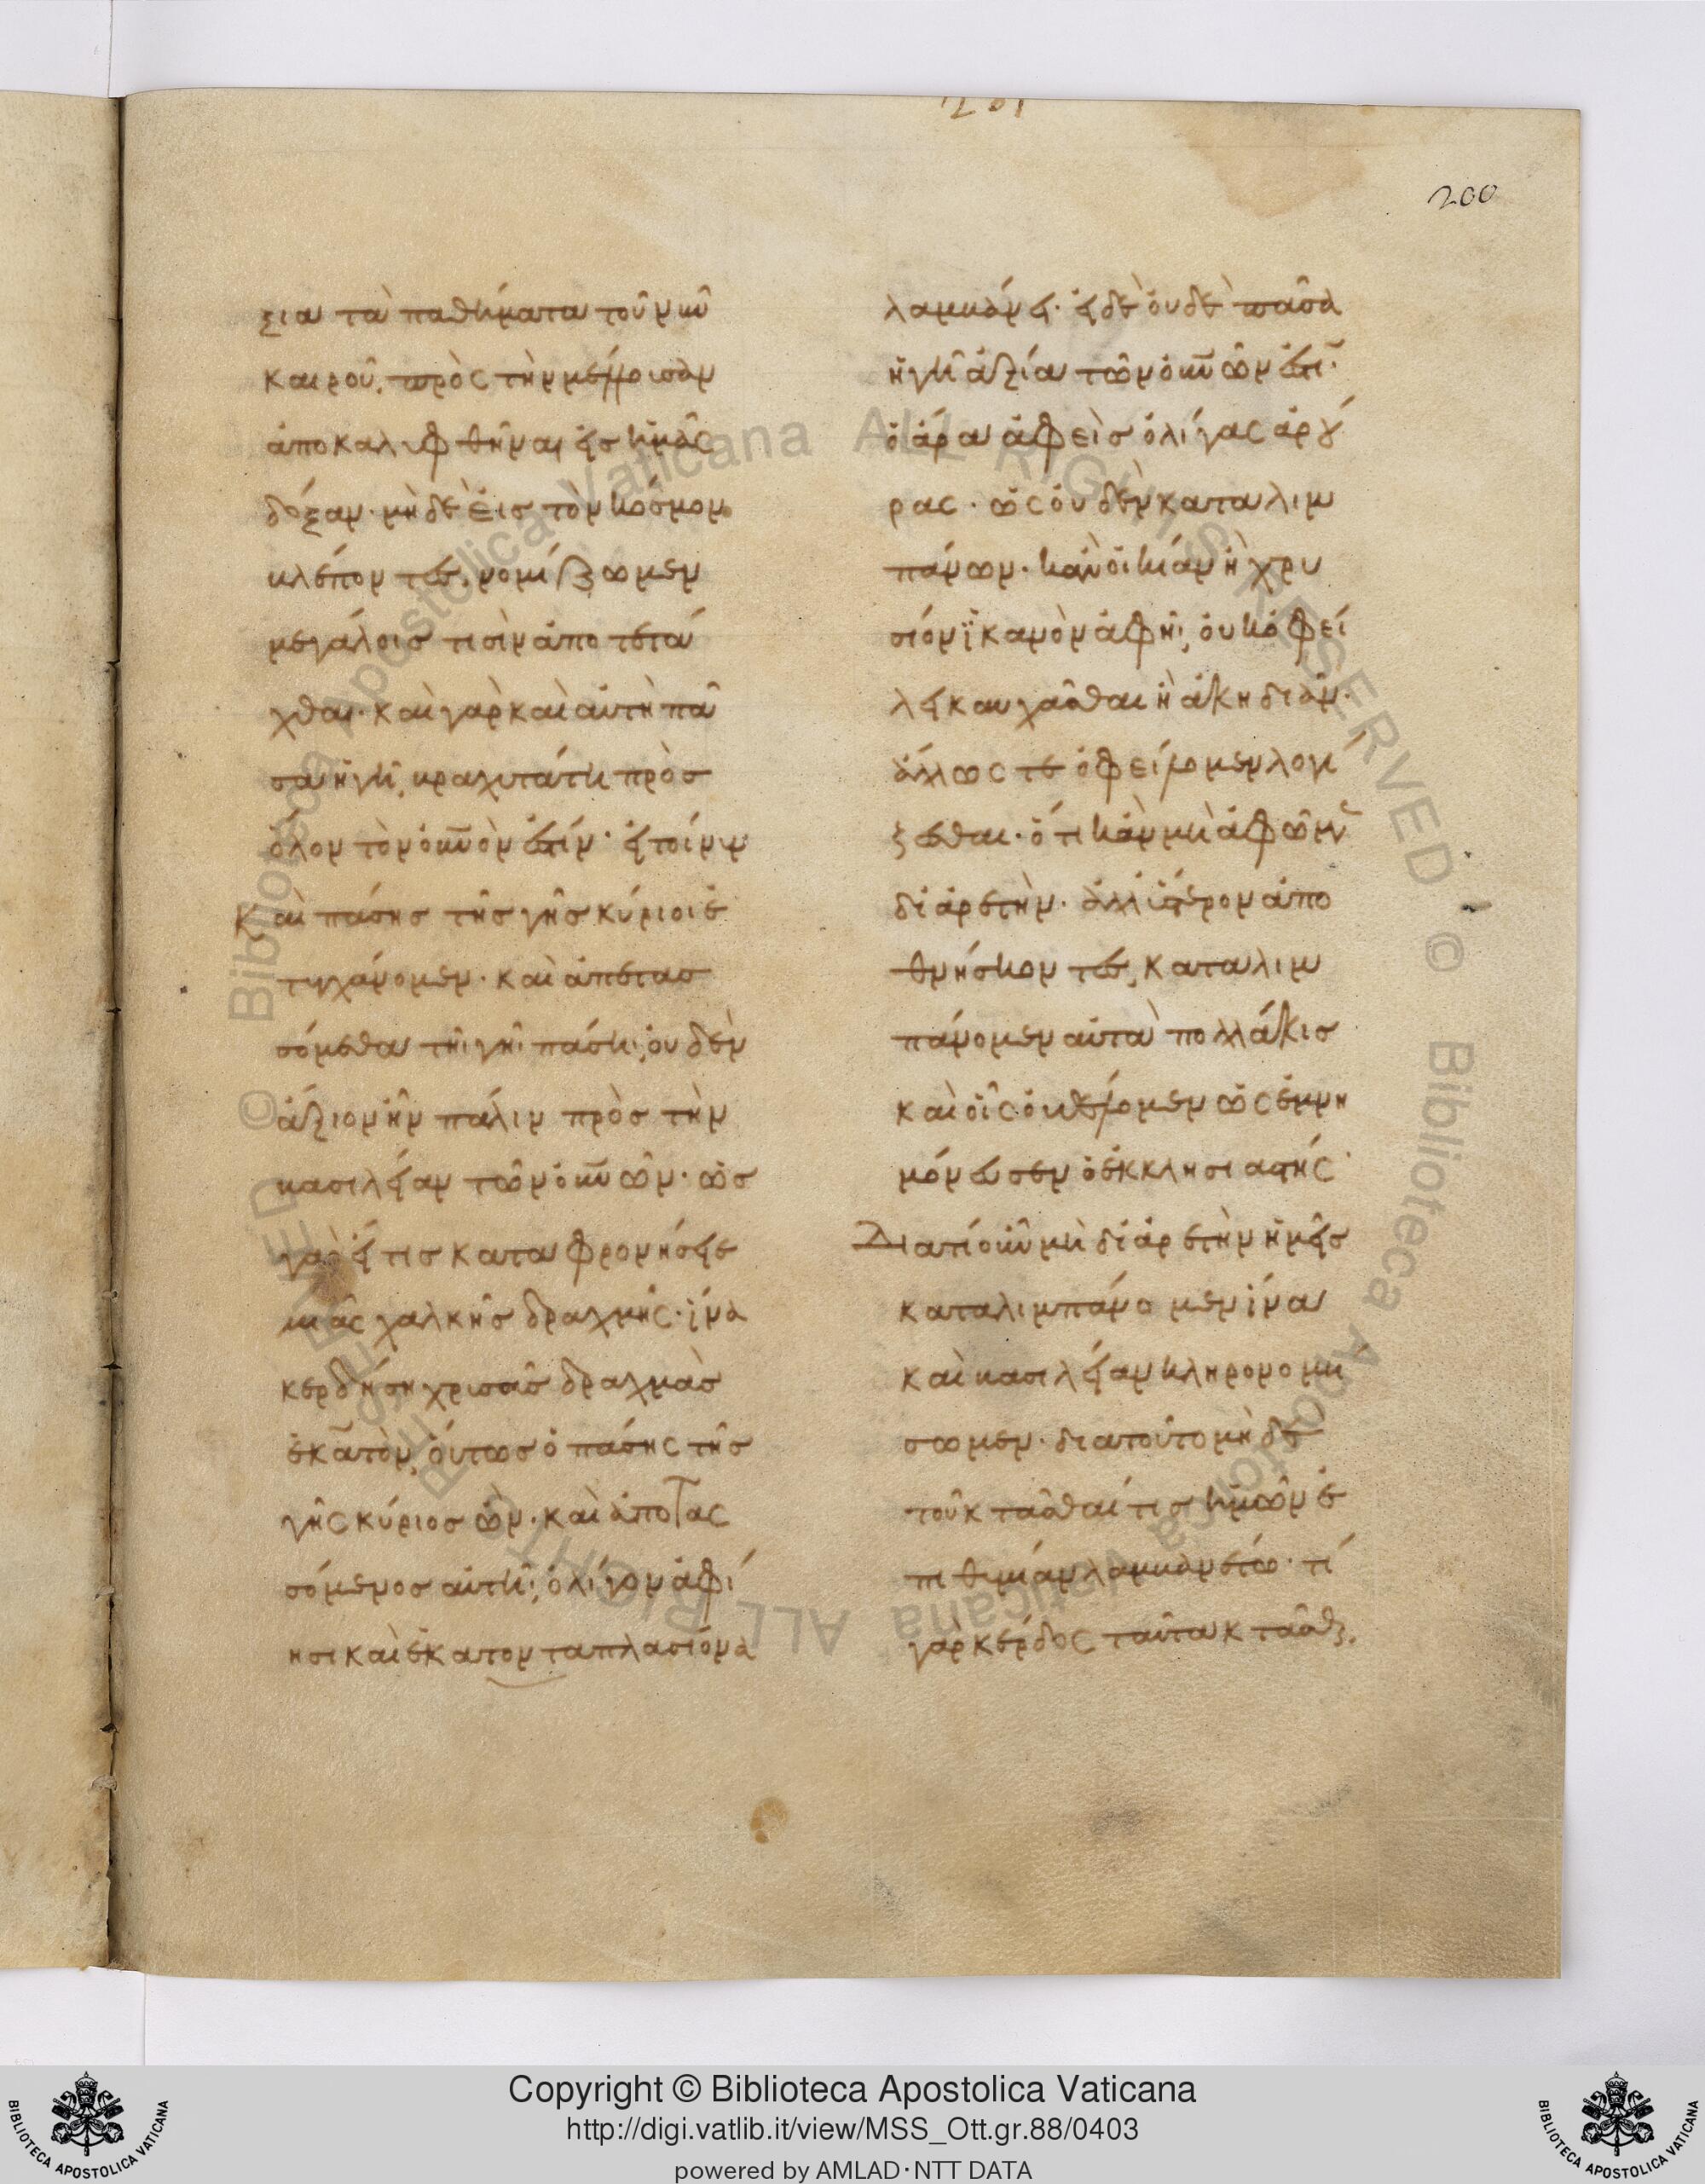 201
200
ξια τὰ παθήματα τοῦ νῦ
καιροῦ, πρὸς τὴν μέλλουσαν
ἀποκαλυφθῆναι εἰς ἡμᾶς
δόξαν· μὴ δὲ εἰς τὸν κόσμον
βλέποντες, νομίζωμεν
μεγάλοις τισὶν ἀποτετά
χθαι· καὶ γὰρ καὶ αὐτὴ πᾶ
σα ἡ γῆ, βραχυτάτη πρὸς
ὅλον τὸν οὐνὸν ἐστίν· εἰ τοίνυν
καὶ πάσης τῆς γῆς κύριοι ἐ
τυγχάνομεν· καὶ ἀπετασ
σόμεθα τῆι γῆι πάση, οὐδὲν
ἄξιον ἦν πάλιν πρὸς τὴν
βασιλείαν τῶν οὐνῶν· ὡς
γὰρ εἴ τις καταφρονήσειε
μιᾶς χαλκῆς δραχμῆς· ἵνα
κερδήση χρισᾶς δραχμὰς
ἑκατὸν, οὕτως ὁ πάσης τῆς
γῆς κύριος ὢν· καὶ ἀποτας
σόμενος αὐτῆ, ὀλίγον ἀφί
ησι καὶ ἑκατονταπλασίονα
λαμβάνει· εἰ δὲ οὐδὲ πᾶσα
ἡ γῆ ἀξία τῶν οὐνῶν ἐστι·
ὁ ἄρα ἀφεὶς ὀλίγας ἀρού
ρας· ὡς οὐδὲν καταλιμ
πάνων· κἂν οἰκίαν ἢ χρυ
σίον ϊκανὸν ἀφῆι, οὐκ ὀφεί
λει καυχᾶσθαι ἢ ἀκηδιᾶν·
ἄλλως τε ὀφείλομεν λογί
ζεσθαι· ὅτι κἂν μὴ ἀφῶμεν
δι ἀρετὴν· ἀλλ ὕστερον ἀπο
θνήσκοντες, καταλιμ
πάνομεν αὐτὰ πολλάκις
καὶ οἷς οὐ θέλομεν ὡς ἐμνη
μόνευσεν ὁ ἐκκλησιαστής·
Διατί οὖν μὴ δι ἀρετὴν ἡμεῖς
καταλιμπάνομεν ἵνα
καὶ βασιλείαν κληρονομή
σωμεν· διατοῦτο μὴ δὲ
τοῦ κτᾶσθαί τις ἡμῶν ἐ
πιθυμίαν λαμβανέτω· τί
γὰρ κέρδος ταῦτα κτᾶσθαι,
Copyright © Biblioteca Apostolica Vaticana
http://digi.vatlib.it/view/MSS_Ott.gr.88/0403
powered by AMLAD·NTT DATA